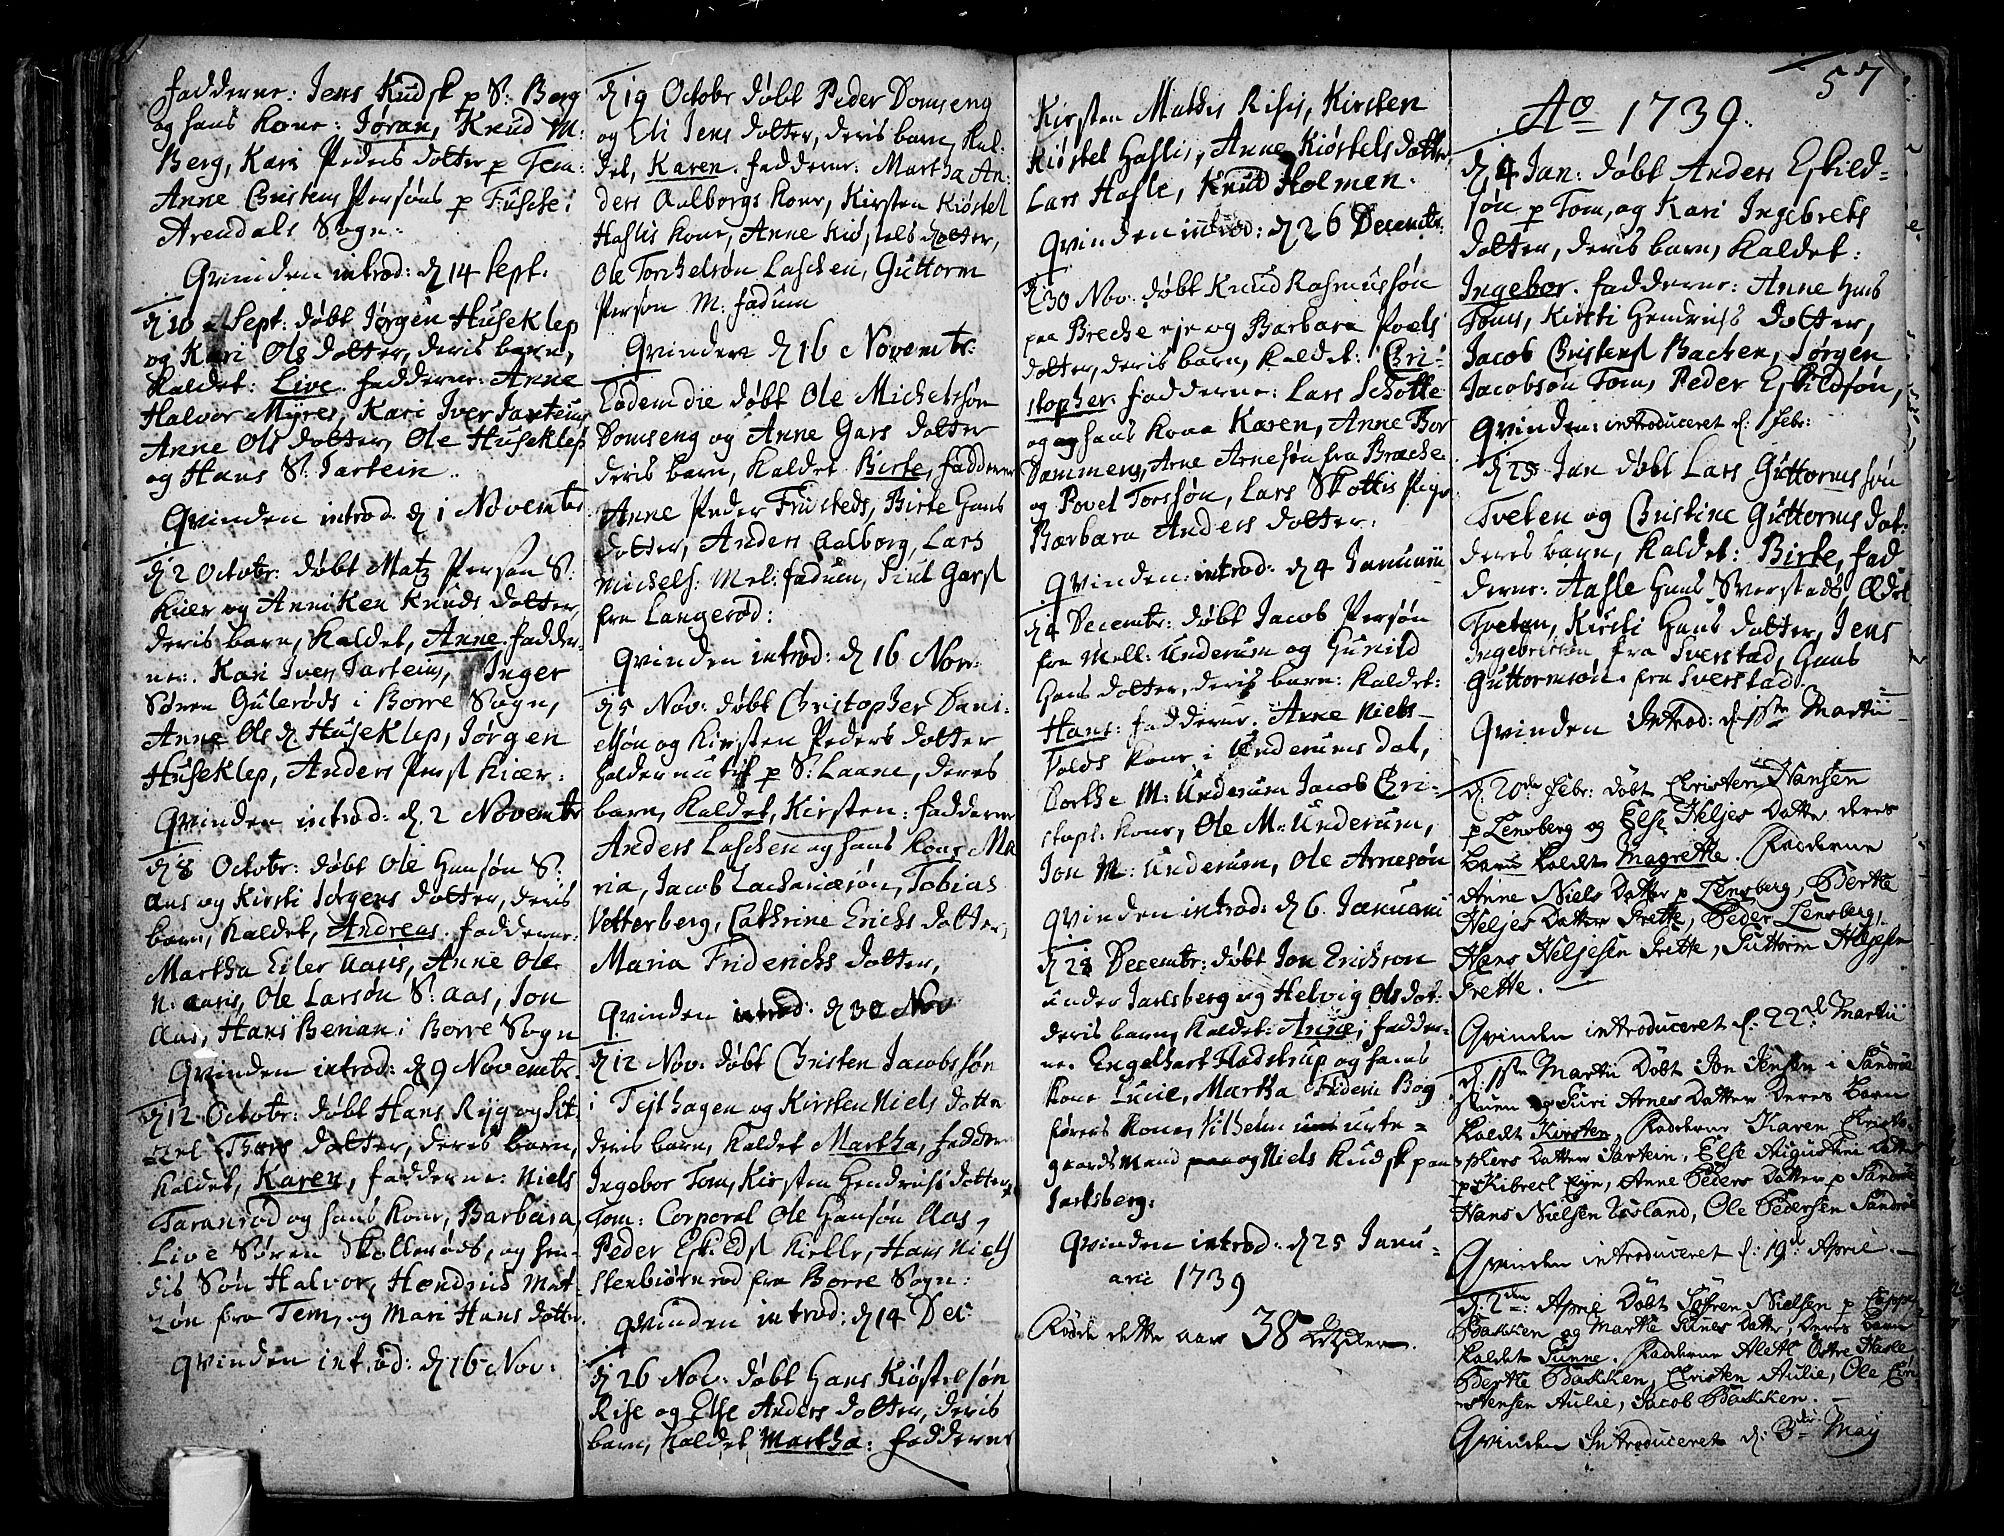 fadderne: Jens Kudsk p S: Berg
og hans kone: Jøran, Knud M:
Berg, Kari Peders dotter p Tem:
Anne Christens Persøns p Fuske i
Arendals Sogn:
Qvinden introd: d 14 Sept.
d 10 Sept: døbt Jørgen Huseklep
og Kari Ols dotter, deris barn,
kaldet: Live. fadderne: Anne
Halvor Myres, Kari Iver Jarteins
Anne Ols dotter, Ole Huseklep
og Hans S: Jartein.
Qvinden introd. d 1 Novembr
d 2 Octobr: døbt Matz Person S:
Kiær og Anniken Knuds dotter,
deris barn, kaldet, Anne. fadder-
ne: Kari Iver Jarteins, Inger
Søren Gulerøds i Borre Sogn,
Anne Ols d. Huseklep, Jørgen
Huseklep, Anders Persl Kiær:
Qvinden introd: d. 2 Novembr
d 8 Octobr: døbt Ole Hansøn S:
Aas og Kirsti Jørgens dotter, deris
barn, kaldet, Andreas. fadderne:
Martha Eiler Aasis, Anne Ole
N: Aasis, Ole Larsøn S: Aas, Jon
Aas, Hans Berian i Borre Sogn
Qvinden introd: d 9 Novembr.
d 12 Octobr: døbt Hans Ryg og Sit-
zel Thors dotter, deris barn,
kaldet, Karen, fadderne: Niels
Taranrød og hans kone, Barbara,
Live Søren Skollerøds, og hen-
dis Søn Halvor, Hendrich Mat-
zøn fra Tem, og Mari Hans dotter.
Qvinden introd: d 16 Nov:
d 19 Octobr døbt Peder Domseng
og Eli Jens dotter, deris barn, kal-
det, Karen. fadderne: Martha An-
ders Aalborgs kone, Kirsten Kiøstel
Haslis kone, Anne Kiøstels dotter,
Ole Torchelsøn Laschen, Guttorm
Persøn M: fadum
Qvinden d 16 Novembr:
Eodem die døbt Ole Michelsøn
Domseng og Anne Gars dotter
deris barn, kaldet Birte, fadderne
Anne Peder Fristeds, Birte Hans
dotter, Anders Aalborg, Lars
Michels: Mel: fadum, Poul Garsl
fra Langerød:
Qvinden introd: d 16 Nov:
d 5 Nov: døbt Christopher Dani-
elsøn og Kirsten Peders dotter
holder p S: Laane, deres
barn, kaldet, Kirsten: fadderne
Anders Laschen og hans kone Ma
ria, Jacob Zachariæsøn, Tobias
Vetterberg, Cathrine Erichs dotter,
Maria Friderichs dotter,
Qvinden introd: d 30 Nov
d 12 Nov: døbt Christen Jacobssøn
i Tejlhagen og Kirsten Niels dotter
deris barn, kaldet Martha, faddern
Ingebor Tom, Kirsten Hendrichs dotter,
Tom: Corporal Ole Hansøn Aas,
Peder Eskildsl Kielle, Hans Niels
Stenbiørnrød fra Borre Sogn:
Qvinden introd: d 14 Dec:
d 26 Nov: døbt Hans Kiøstelsøn
Rise og Else Anders dotter, deris
barn, kaldet Martha: fadderne
Kirsten Mathis Risis, Kirsten
Kiøstel Haslis, Anne Kiøstels dotter
Lars Hasle, Knud Holmen.
Qvinden introd: d 26 Decembr.
d 30 Nov: døbt Knud Rasmussøn
paa Breche eje og Barbara Povels
dotter, deris barn, kaldet: Chri-
stopher. fadderne: Lars Schotte
og hans kone Karen, Anne Bor
Dommens, Arne Arnesøn fra Breche
og Povel Torssøn, Lars Skottis Pige
Barbara Anders dotter.
Qvinden introd: d 4 Januarii
d 4 Decembr: døbt Jacob Persøn
fra Mell: Underum og Gunild
Hans dotter, deris barn: kaldet:
Hans: fadderne. Anne Niels-
Volds kone i Underums dal,
Dorthe M: Underum Jacob Chri-
stoph: kone, Ole M: Underum,
Jon M: Underum, Ole Arnesøn
Qvinden introd: d 6. Januarii
d 28 Decembr: døbt Jon Erichson
under Jarlsberg og Helvig Ols dot:
deris barn, kaldet: Anne, fadder-
ne. Engelhart Hadstrup og hans
kone Lucie, Martha Frideric Bog
førers kone, Vilhelm urte-
gaardsMand og Niels Kudsk paa
Jarlsberg.
Qvinden introd: d 25 Janu-
arii 1739
Fødde dette aar 38
57
Ao 1739.
d 4 Jan: døbt Anders Eskild-
søn p Tom, og Kari Ingebrets
dotter, deris barn, kaldet:
Ingebor. fadderne: Anne Hans
Toms, Kirsti Hendrichs dotter,
Jacob Christensl Bachen, Jørgen
Jacobsøn Tom, Peder Eskildsøn,
Qvinden: introduceret d: 1 febr:
d 25 Jan døbt Lars Guttormssøn
Tveten og Christine Guttorms dot:
deres barn, kaldet: Birte, fad
derne: Aasle Hans Sverstads, Edel
Tveten, Kirsti Hans dotter, Jens
Ingebritsøn fra Sverstad, Hans
Guttormsøn fra Sverstad.
Qvinden Introd: d. 1ste Martii
d: 20de Febr: Døbt Christen Hansen
p Lensberg og Else Heljes Datter deres
barn kaldt Magrethe. Fadderne
Anne Niels Datter p Lensberg, Berthe
Heljes Datter Frette, Peder Lensberg,
Hans Heljesen Frette, Guttorm Heljesen
Frette.
Qvinden introduceret d: 22de Martii
d: 1ste Martii Døbt Jon Jensen i Sandrøe
stuen og Guri Arnes Datter Deres Barn
kaldt Kirsten. Fadderne Karen Christo-
phers Datter Jartein, Else Augustini Datter
p Kibreck Eyn, Anne Peders Datter p Sandrøe
Hans Nielsen Røsland, Ole Pedersen Sandrøe
Qvinden introduceret d: 19de Aprie.
d: 2den Aprie Døbt Søfren Nielsen p
Bakken og Marthe Gunes Datter, Deres Barn
kaldet Gunne. Fadderne Aleth Østre Hasle
Berthe Bakken, Christen Aulie, Ole Chri-
stensen Aulie, Jacob Bakken.
Qvinden Introduceret d: 3de May